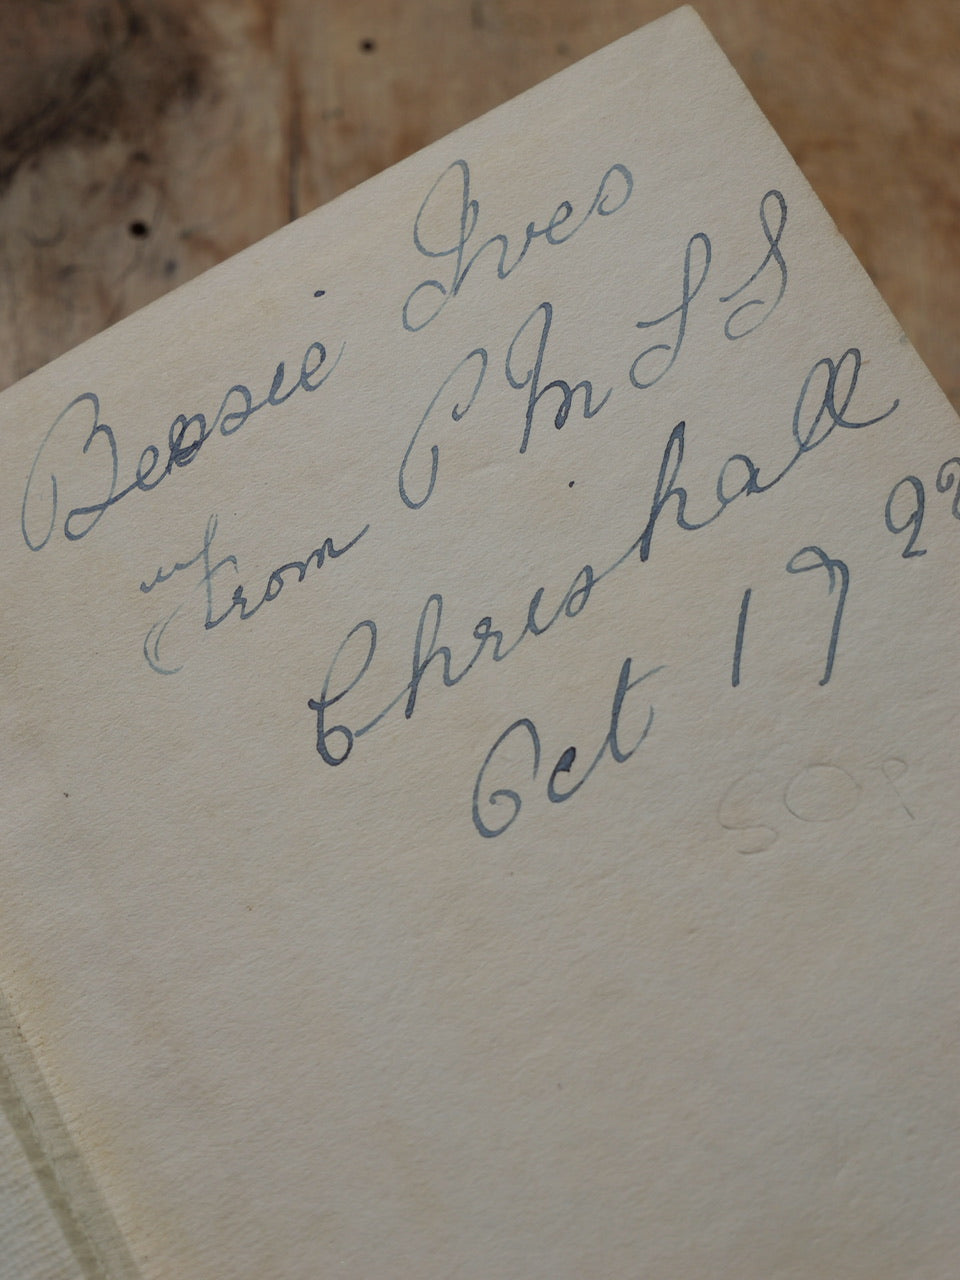 Bessie Ives
From P M S S
Chrishall
Oct 17 22
50p